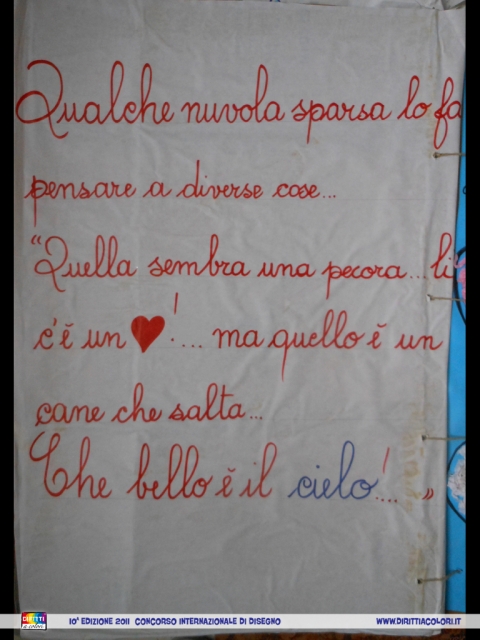 Qualche nuvola sparsa lo fa
pensare a diverse cose...
"Quella sembra una pecora... li
c'è un ❤!... ma quello è un
cane che salta...
Che bello è il cielo!... "
DIRITTI a colori
10ª EDIZIONE 2011 CONCORSO INTERNAZIONALE DI DISEGNO
WWW.DIRITTIACOLORI.IT